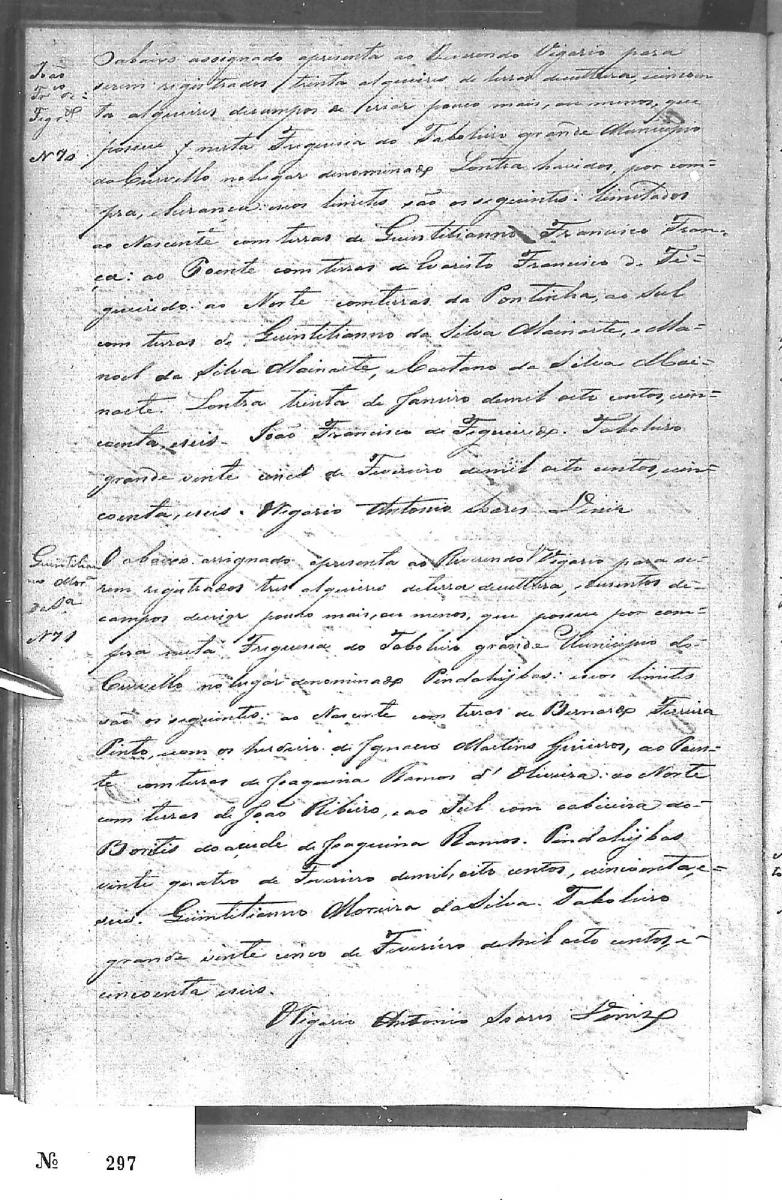 João
Fco de
Figdo
N 70
O abaixo assignado apresenta ao Reverendo Vigario para
serem registrados trinta alqueires de terras de cultura, e cincoen
ta alqueires de campos de criar pouco mais, ou menos, que
possue nesta Freguesia do Taboleiro grande Municipio
do Curvello no lugar denominado Lontra havidos, por com-
pra, e herança: e seos limites são os seguintes: limitados
ao Nascente com terras de Guintilianno Francisco Fran-
ça: ao Poente com terras de Evaristo Francisco de Fi-
gueiredo: ao Norte com terras da Pontinha, ao Sul
com terras de Guintilianno da Silva Mainarte, e Ma-
noel da Silva Mainarte, e Caetano da Silva Mai-
narte. Lontra trinta de Janeiro de mil oito centos, cin-
coenta, e seis. João Francisco de Figueiredo. Taboleiro
grande vente de Fevereiro de mil oito centos, cin-
coenta, e seis. Vigario Antonio Soares Diniz
Guintilian
no Mora
da Sa
N 71
O abaixo assignado apresenta ao Reverendo Vigario para se-
rem registrados tres alqueires de terra de cultura, e de
campos de criar pouco mais, ou menos, que possue por com-
pra nesta Freguesia do Taboleiro grande Municipio do
Curvello no lugar denominado Pindahijbas: e seos limites
são os seguintes: ao Nascente com terras de Bernardo Ferreira
Pinto, e com os herdeiro de Ignacio Martins, ao Poen-
te com terras de Joaquina Ramos d'Oliveira: ao Norte
com terras de João Ribeiro, e ao Sul com cabiceira do
do açude de Joaquina Ramos. Pindahijbas
vinte quatro de Fevereiro de mil oito centos, cincoenta, e
seis. Guintilianno Moreira da Silva. Taboleiro
grande vente cinco de Fevereiro de mil oito centos, e
cincoenta e seis.
Vigario Antonio Soares Diniz
Nº 297